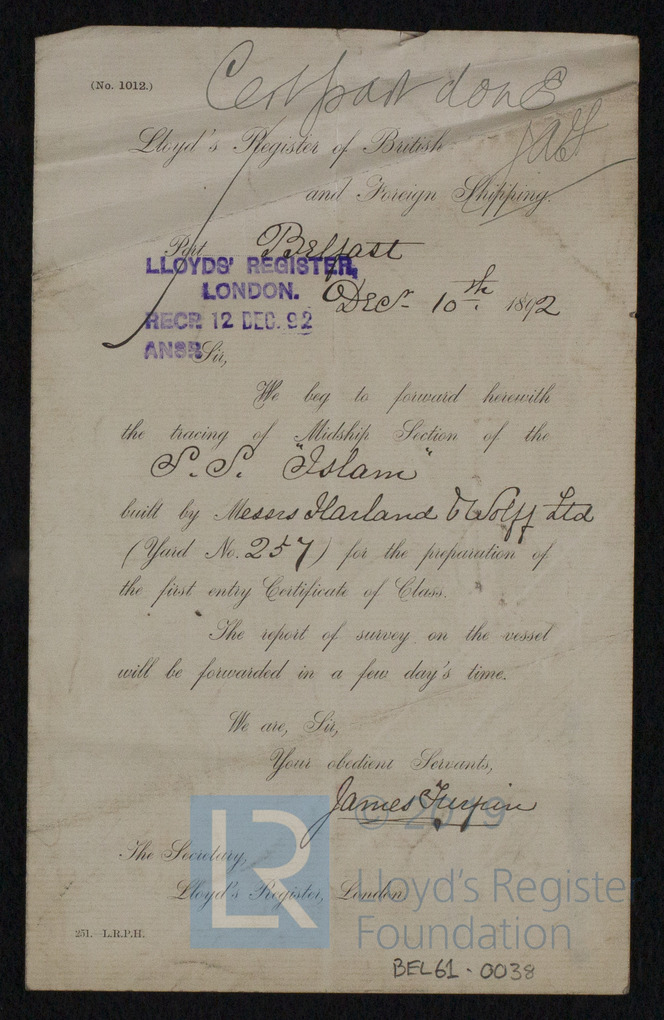 (No. 1012.)
Cert part done
Lloyd's Register of British
and Foreign Shipping.
Port Belfast
LLOYDS' REGISTER,
LONDON.
Decr 10th 1892
RECD 12 DEC. 92
ANSD
Sir,
We beg to forward herewith
the tracing of Midship Section of the
S.S. "Islam"
built by Messrs Harland & Wolff Ltd
(Yard No. 257) for the preparation of
the first entry Certificate of Class.
The report of survey on the vessel
will be forwarded in a few day's time.
We are, Sir,
Your obedient Servants,
James Turpin
© 2019
The Secretary,
Lloyd's Register, London
LR
Lloyd's Register
Foundation
251.—L.R.P.H.
BEL61-0038